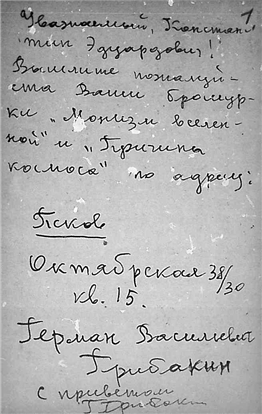 1
Уважаемый, Констан
тин Эдуардович!
Вышлите пожалуй-
ста Ваши брошур-
ки „Монизм вселен-
ной" и „Причина
космоса" по адресу:
Псков
Октябрская 38/30
кв. 15.
Герман Василиевич
Грибакин
с приветом
Грибакин